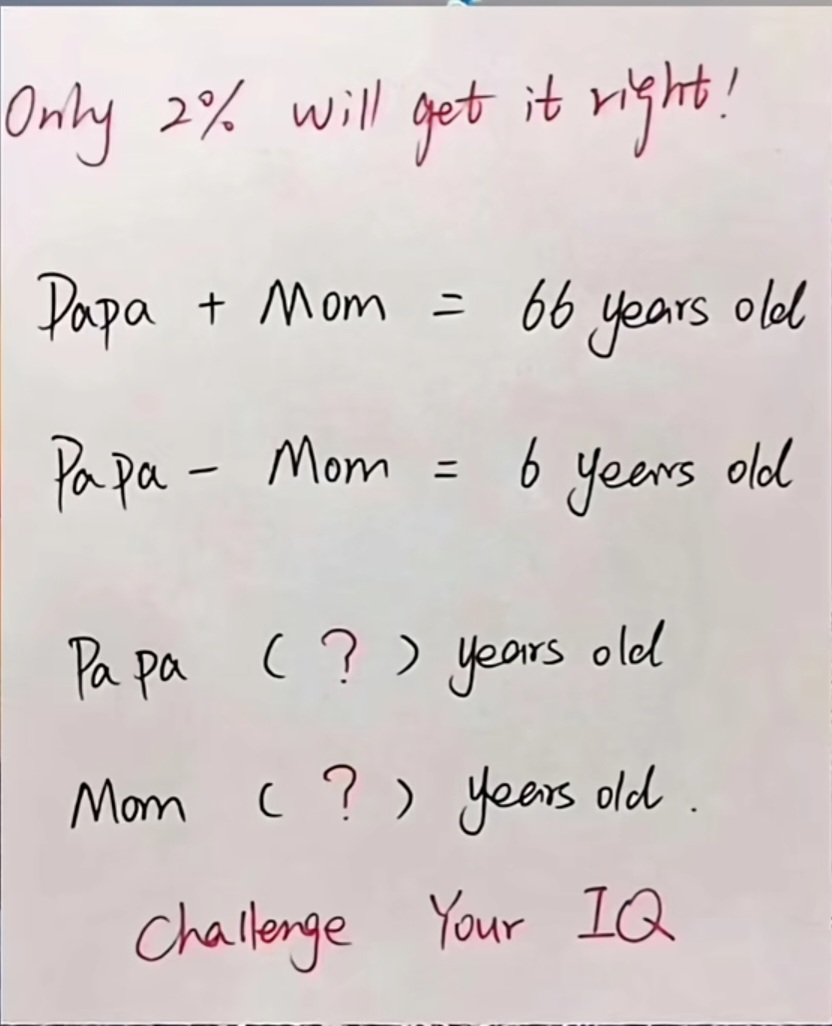 Only 2% will get it right!
Papa + Mom = 66 years old
Papa - Mom = 6 years old
Papa ( ? ) years old
Mom ( ? ) years old.
Challenge Your IQ